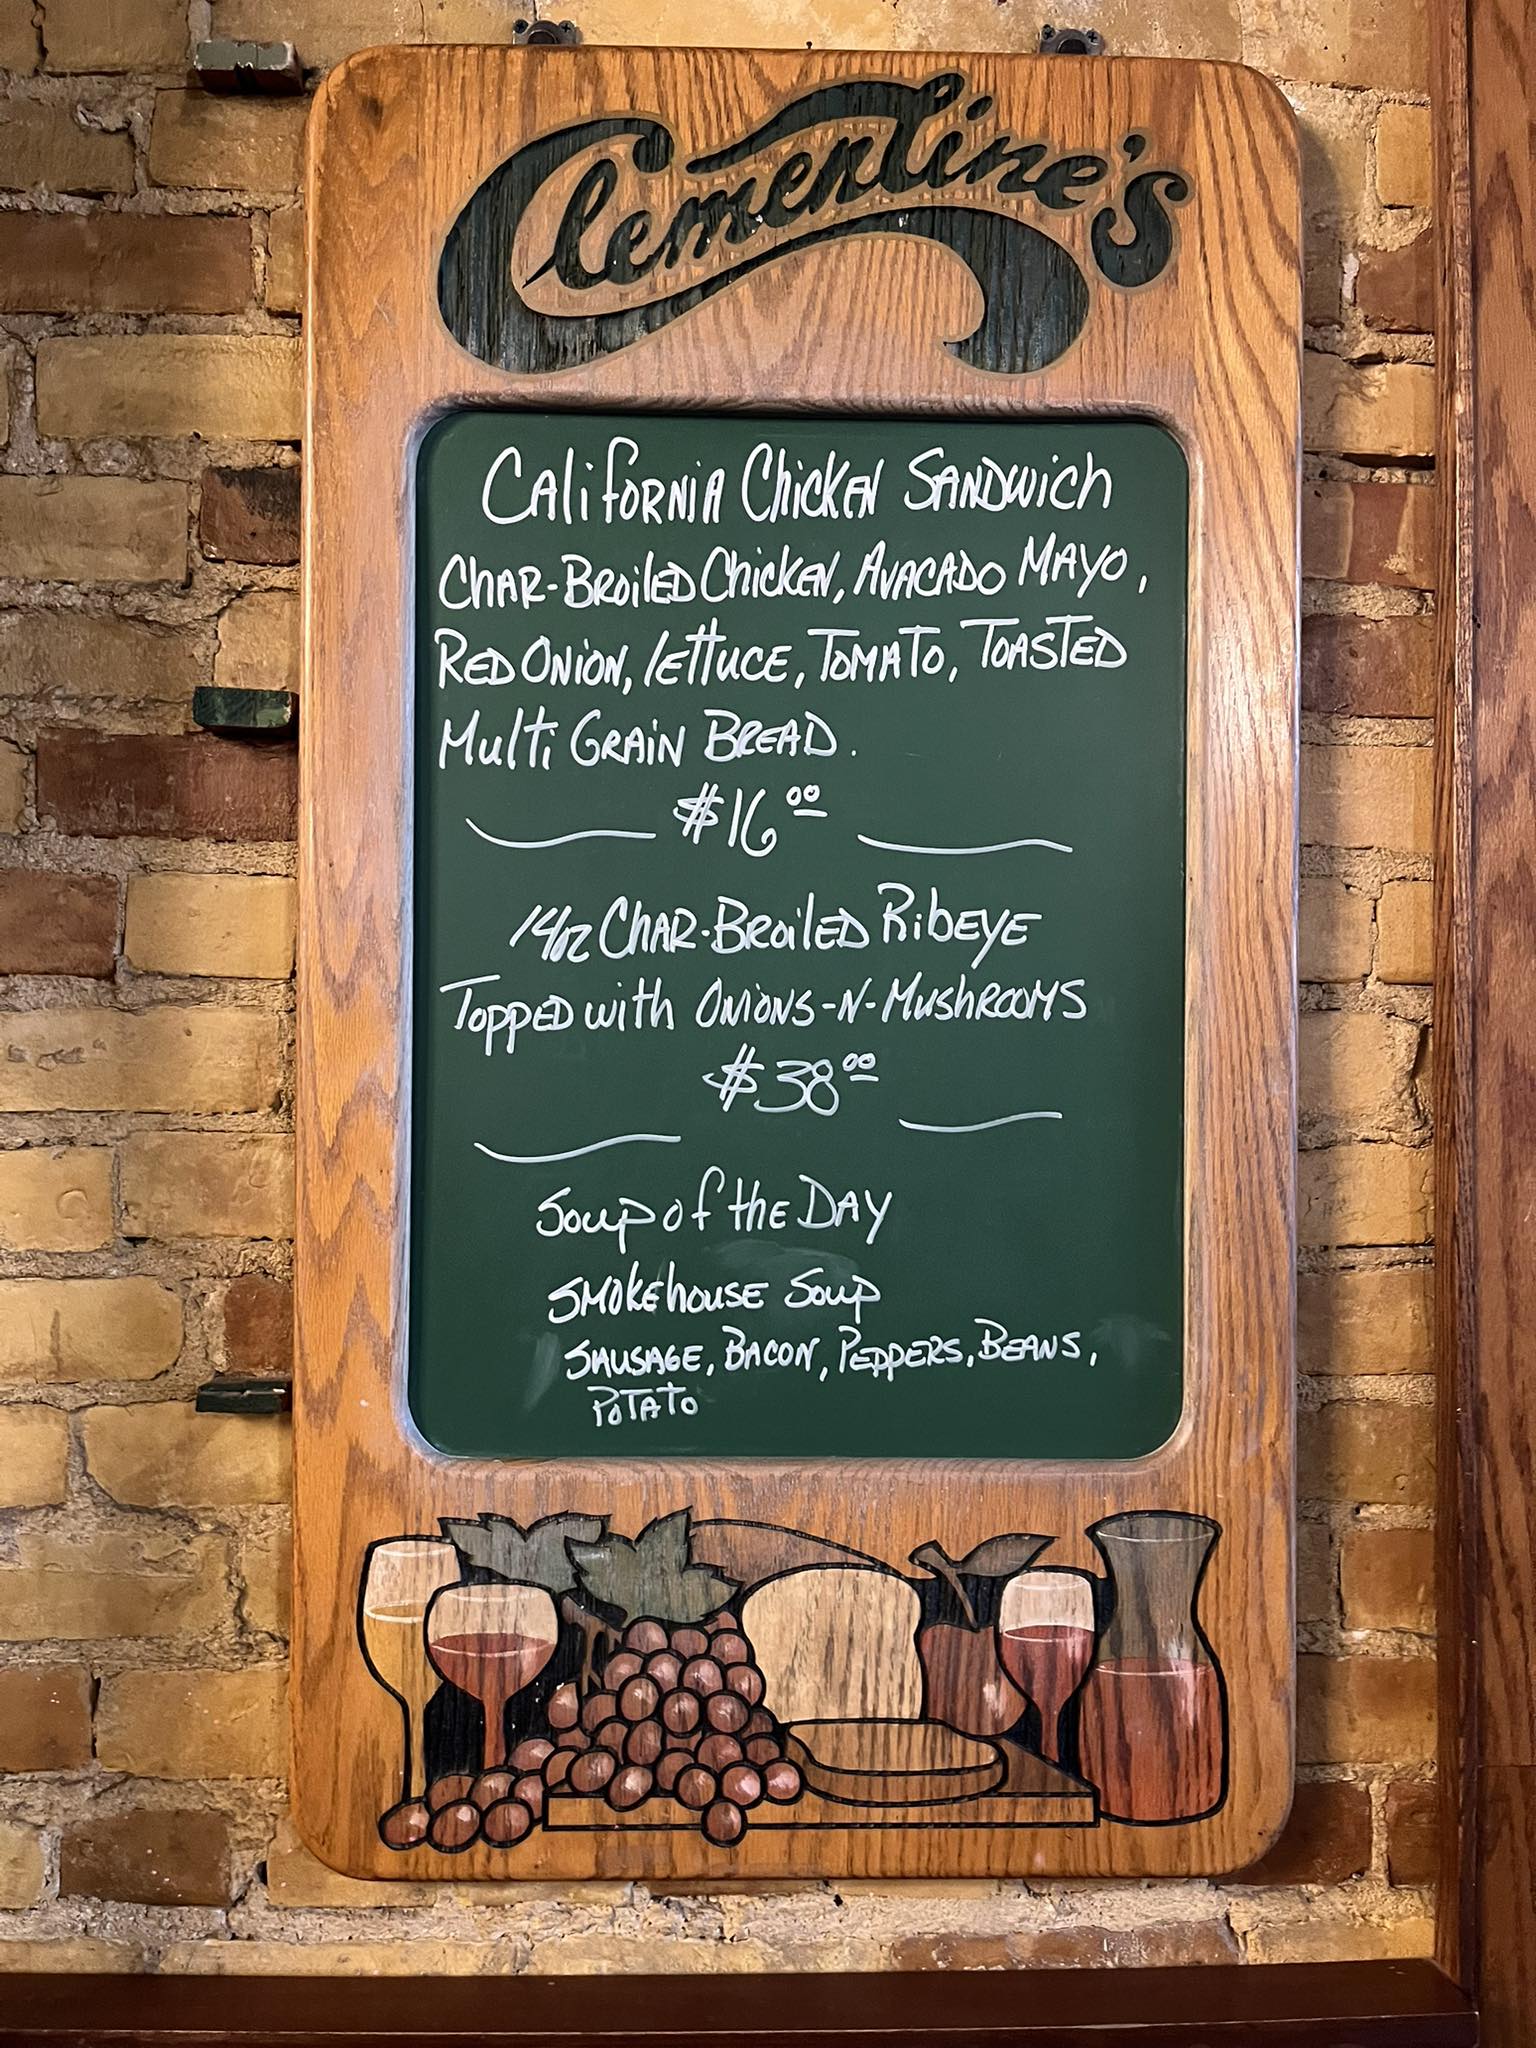 Clementine's
California Chicken Sandwich
Char-Broiled Chicken, Avacado Mayo,
Red Onion, lettuce, Tomato, Toasted
Multi Grain Bread.
$16.00
14oz Char-Broiled Ribeye
Topped with Onions-N-Mushrooms
$38.00
Soup of the Day
Smokehouse Soup
Sausage, Bacon, Peppers, Beans,
Potato